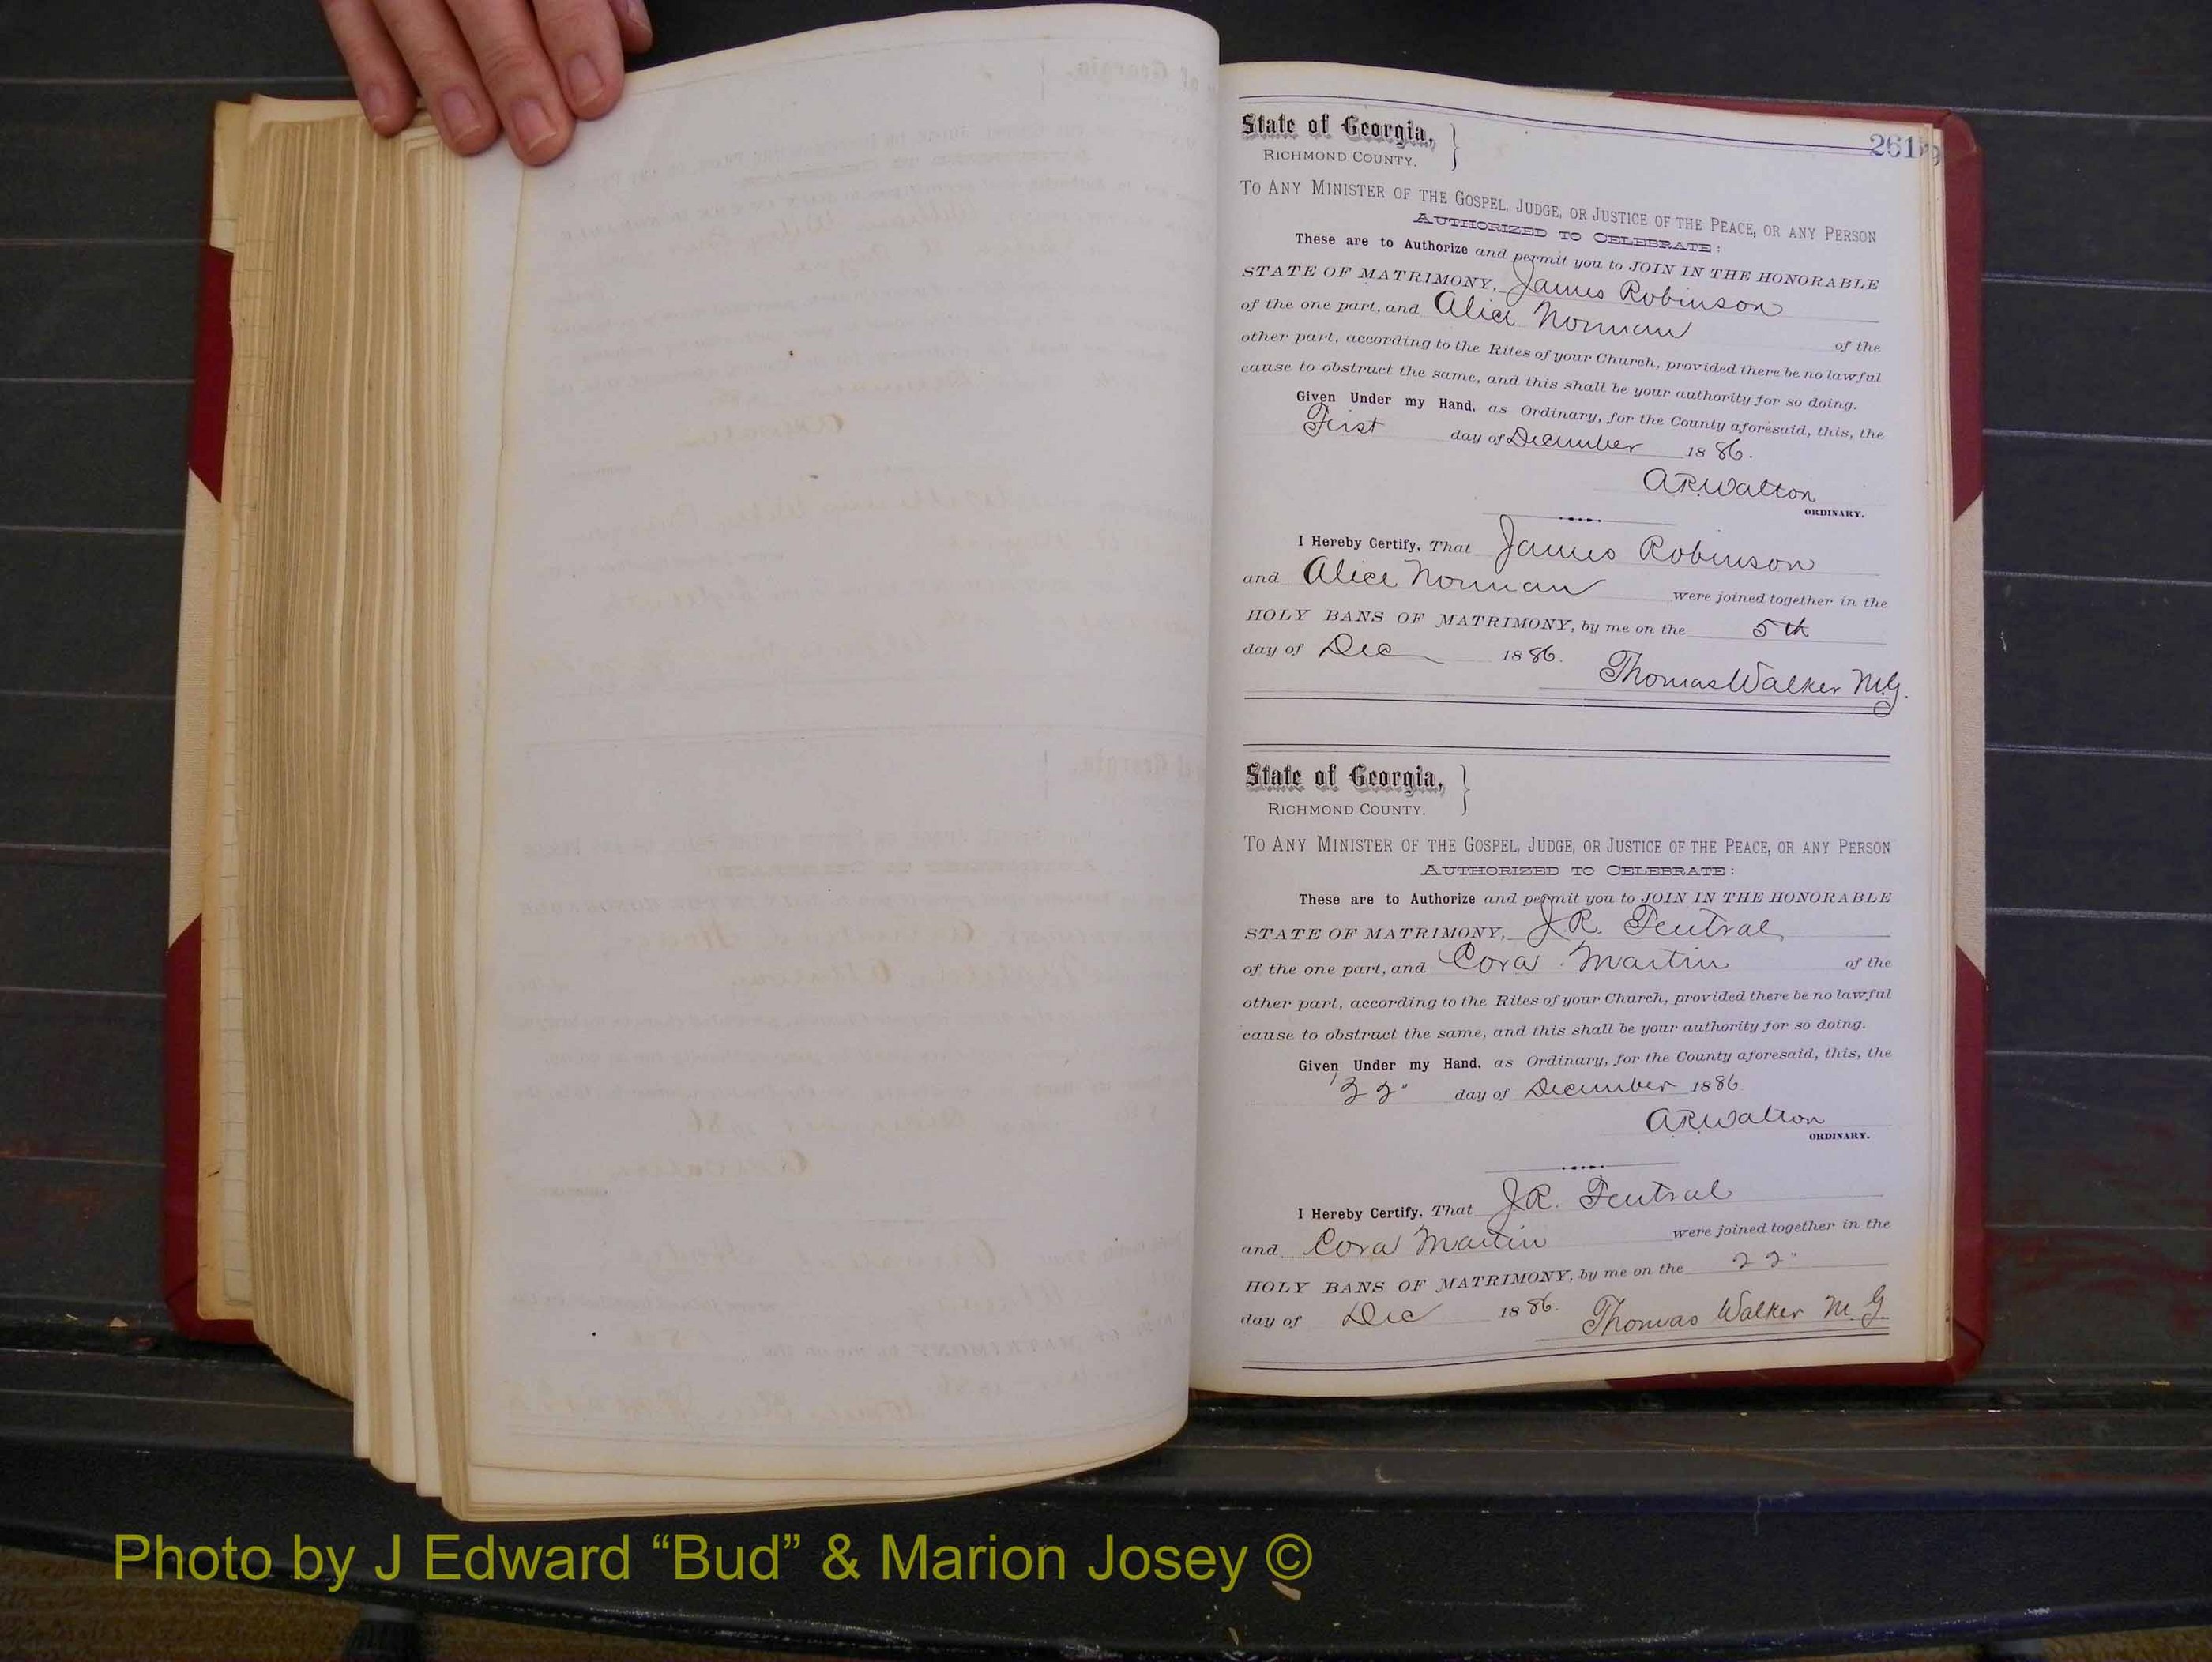 261
State of Georgia, }
RICHMOND COUNTY.
TO ANY MINISTER OF THE GOSPEL, JUDGE, OR JUSTICE OF THE PEACE, OR ANY PERSON
AUTHORIZED TO CELEBRATE:
These are to Authorize and permit you to JOIN IN THE HONORABLE
STATE OF MATRIMONY, James Robinson
of the one part, and Alice Norman of the
other part, according to the Rites of your Church, provided there be no lawful
cause to obstruct the same, and this shall be your authority for so doing.
Given Under my Hand, as Ordinary, for the County aforesaid, this, the
First day of December 1886.
A.R. Walton
ORDINARY.
I Hereby Certify, That James Robinson
and Alice Norman were joined together in the
HOLY BANS OF MATRIMONY, by me on the 5th
day of Dec 1886.
Thomas Walker M.G.
State of Georgia, }
RICHMOND COUNTY.
TO ANY MINISTER OF THE GOSPEL, JUDGE, OR JUSTICE OF THE PEACE, OR ANY PERSON
AUTHORIZED TO CELEBRATE:
These are to Authorize and permit you to JOIN IN THE HONORABLE
STATE OF MATRIMONY, J.R. Fentral
of the one part, and Cora Martin of the
other part, according to the Rites of your Church, provided there be no lawful
cause to obstruct the same, and this shall be your authority for so doing.
Given Under my Hand, as Ordinary, for the County aforesaid, this, the
22" day of December 1886.
A.R. Walton
ORDINARY.
I Hereby Certify, That J.R. Fentral
and Cora Martin were joined together in the
HOLY BANS OF MATRIMONY, by me on the 22"
day of Dec 1886. Thomas Walker M.G.
Photo by J Edward “Bud” & Marion Josey ©